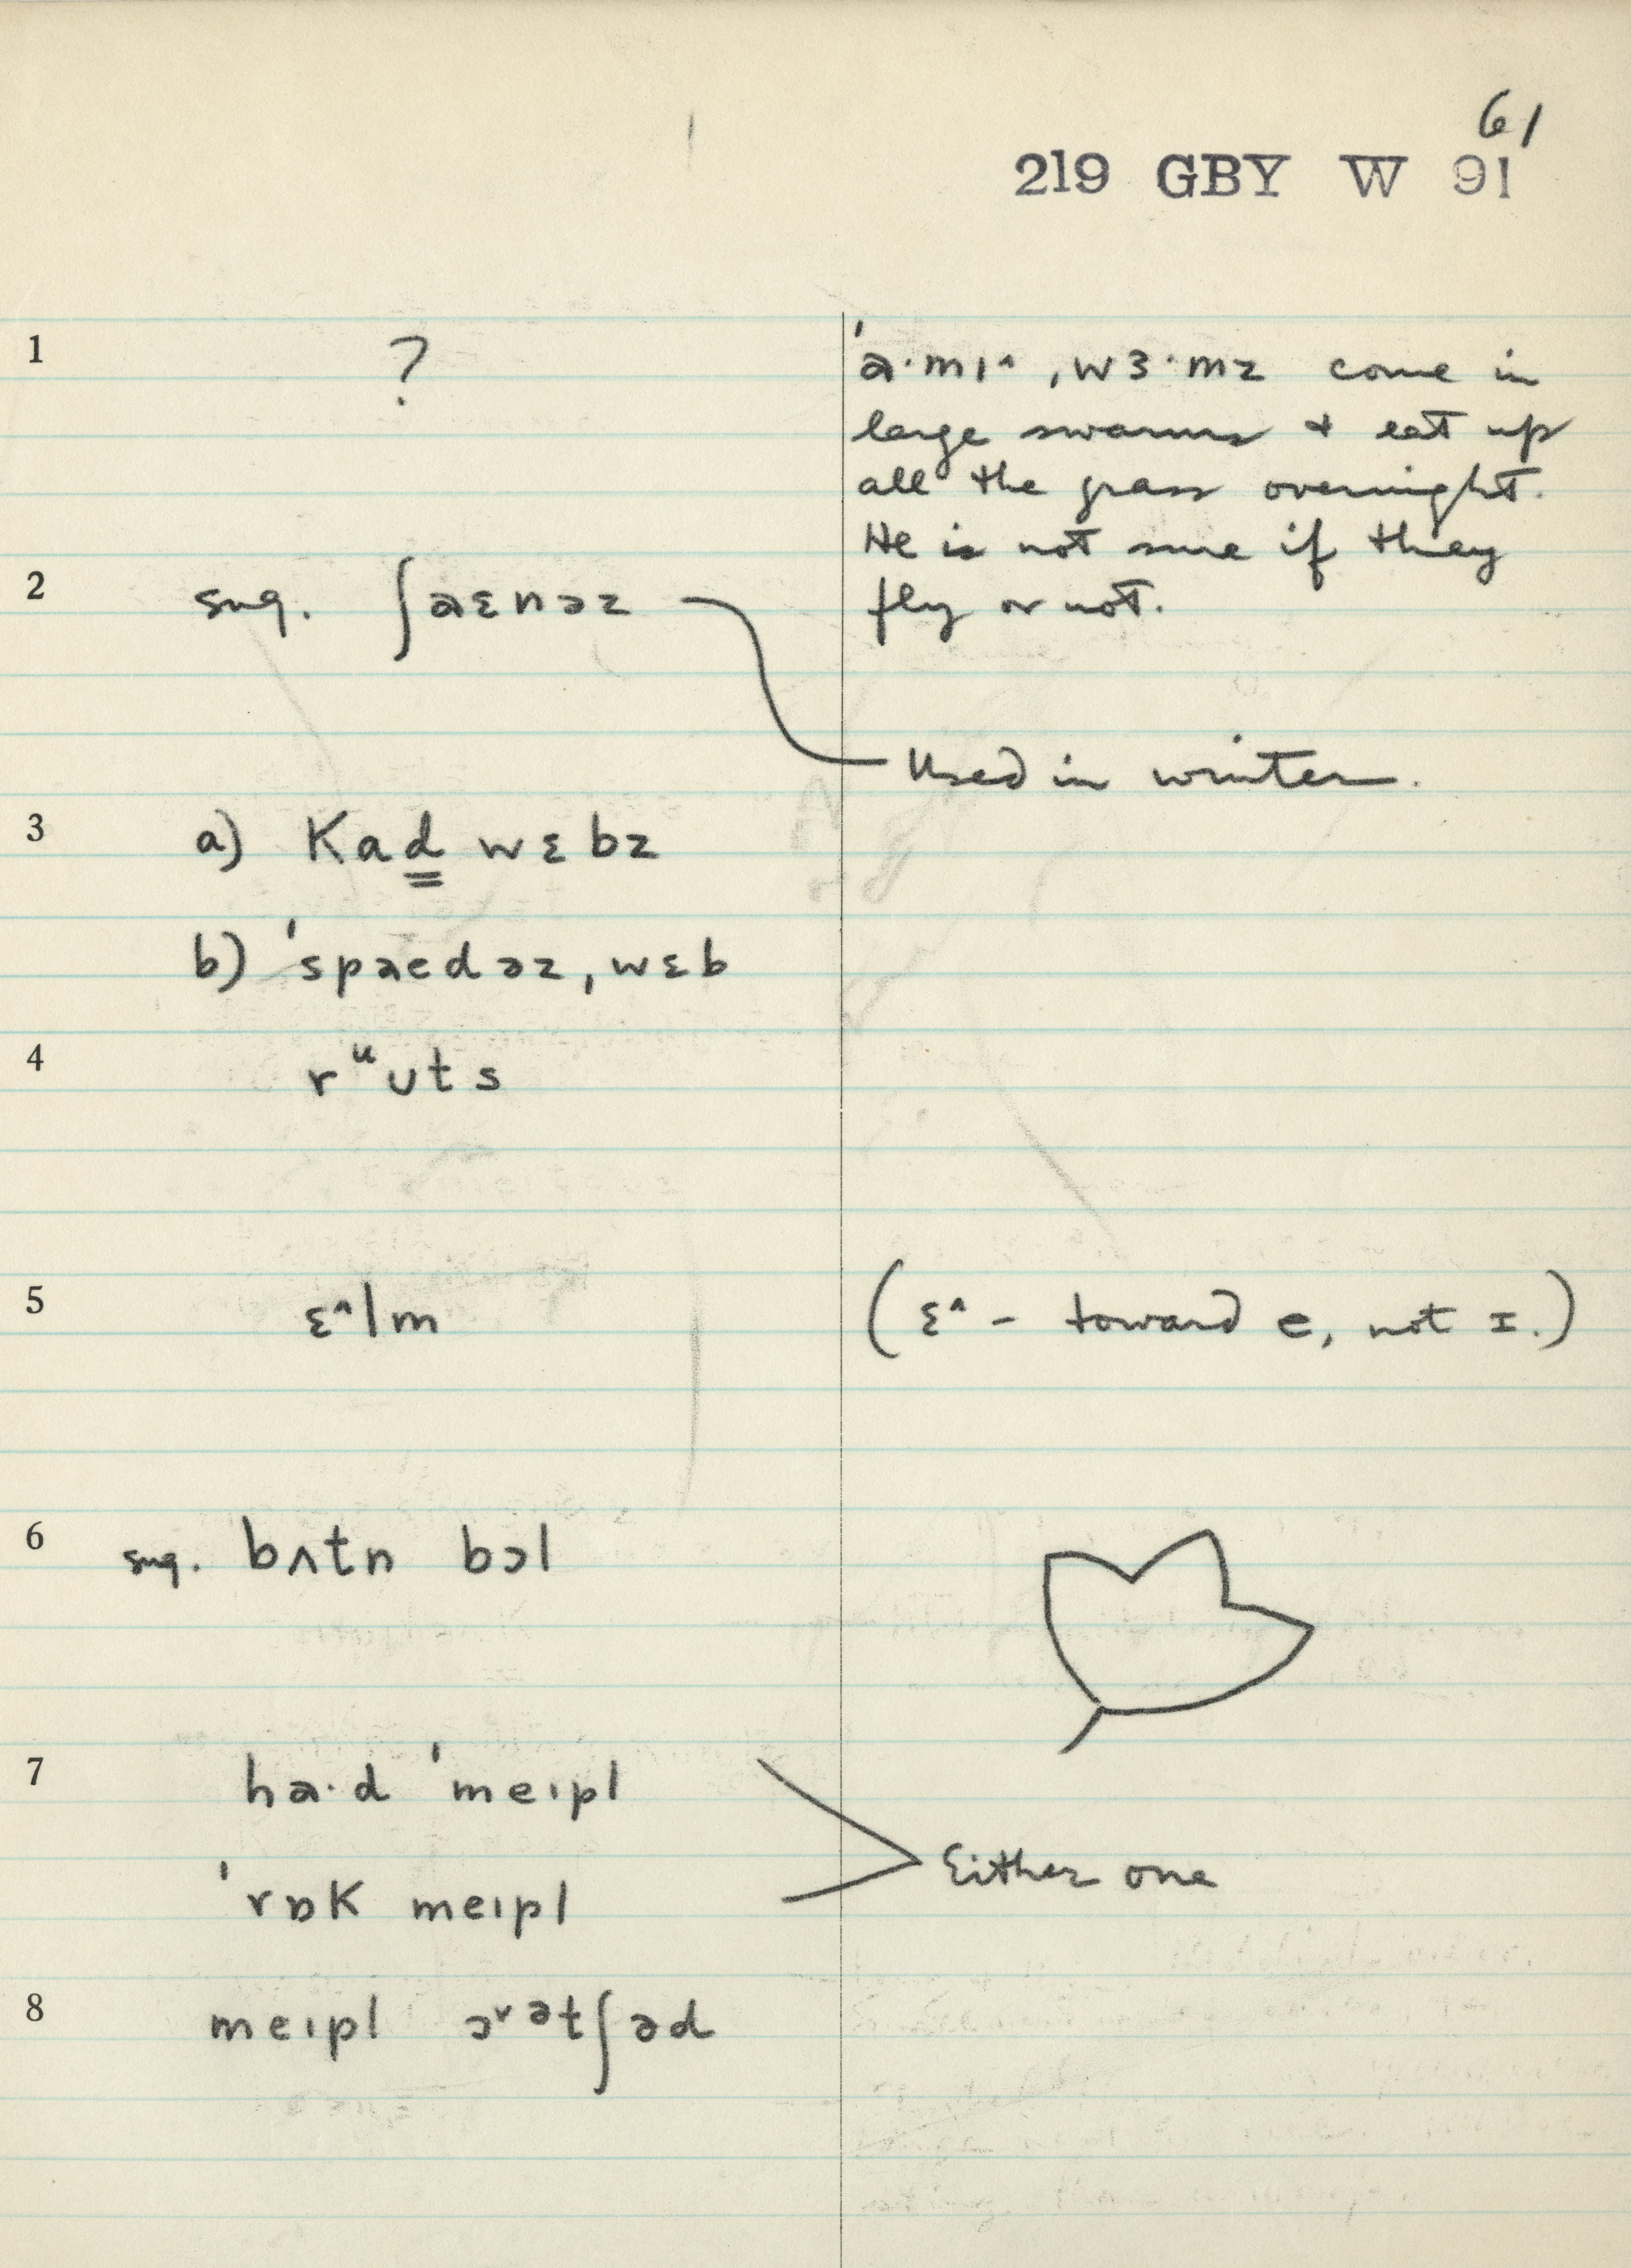 61
219 GBY W 91
1
?
ˈa·mɪ^ ˌwɜ·mz come in
large swarms & eat up
all the grass overnight.
He is not sure if they
fly or not.
2
sug. ʃaɛnəz
Used in winter.
3
a) Kad wɛbz
b) ˈspaedəz ˌwɛb
4
rᵘʊts
5
ɛ^lm
(ɛ^ - toward e, not ɪ.)
6
sug. bʌtn bɔl
7
ha·d ˈmeɪpl
ˈrɒK meɪpl
Either one
8
meɪpl ɔˇətʃəd